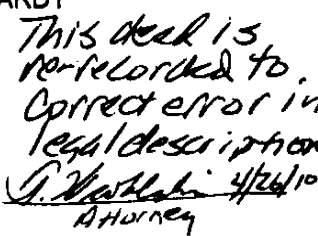 This deed is
re-recorded to.
Correct error in
legal description
4/26/10
Attorney